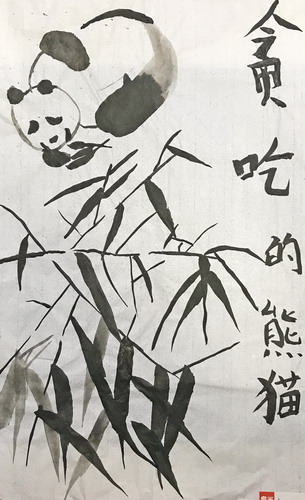 贪吃的熊猫